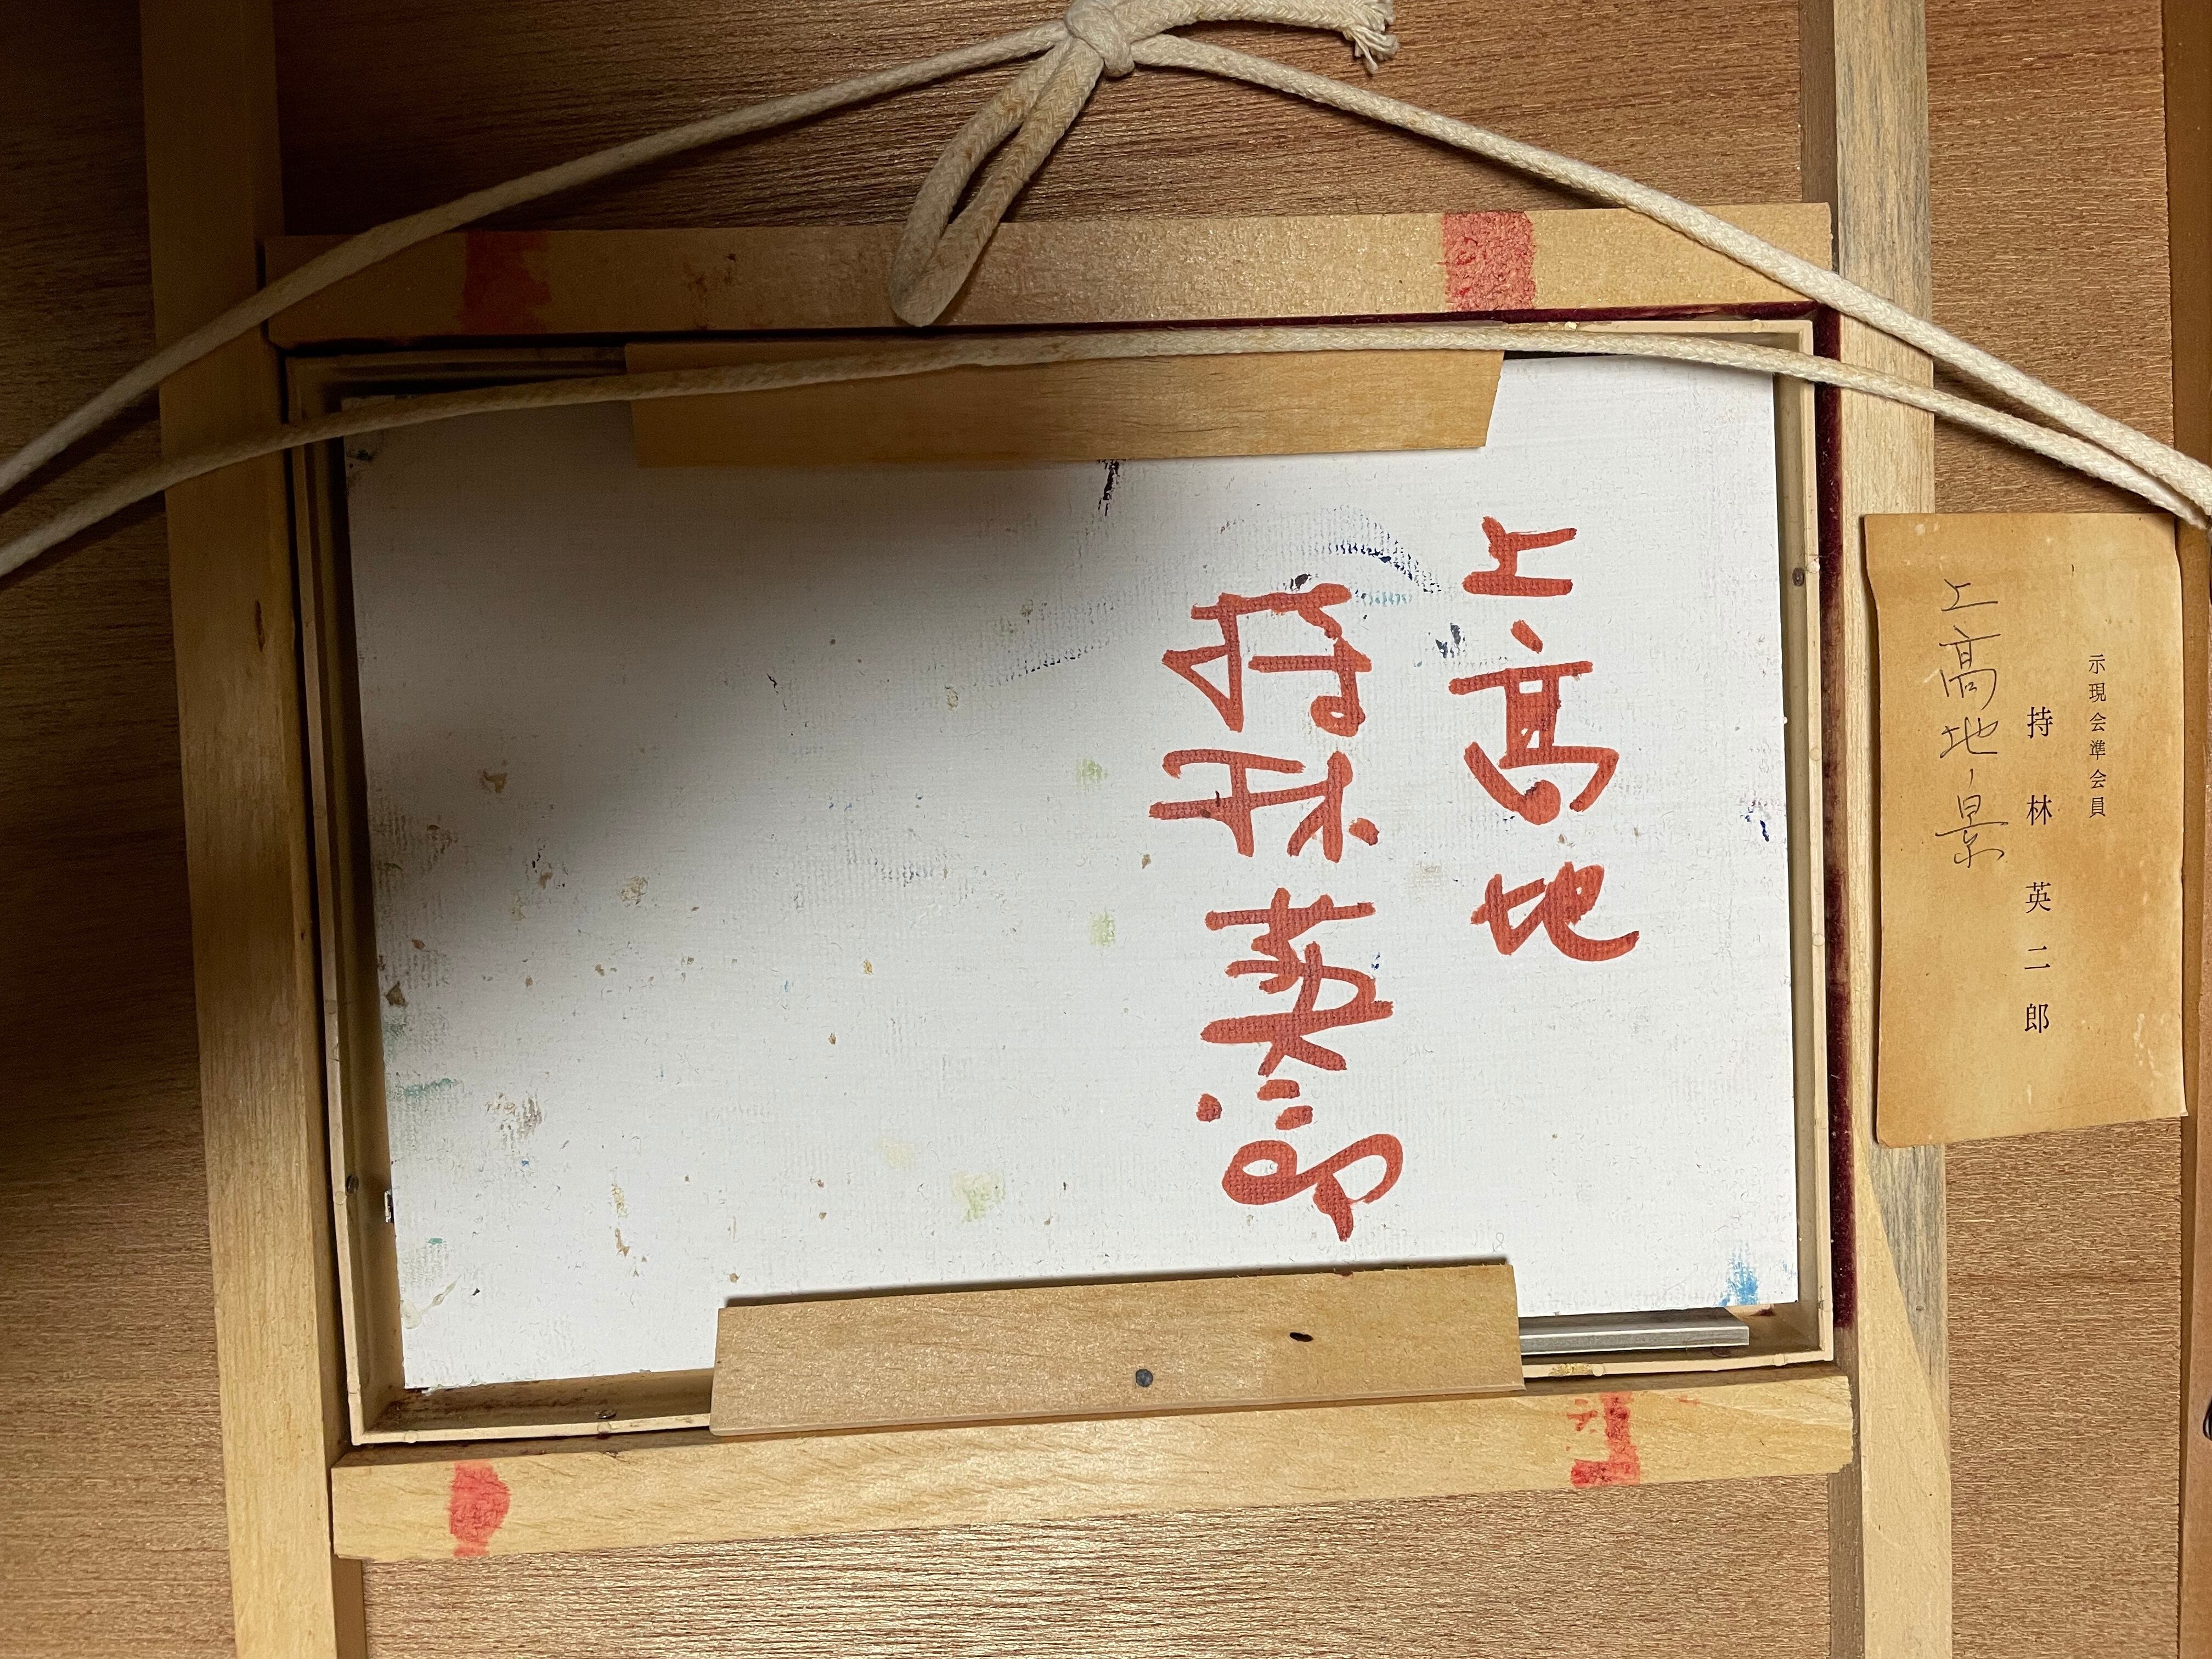 上高地
持林英二郎
示現会準会員
持林英二郎
上高地ノ景